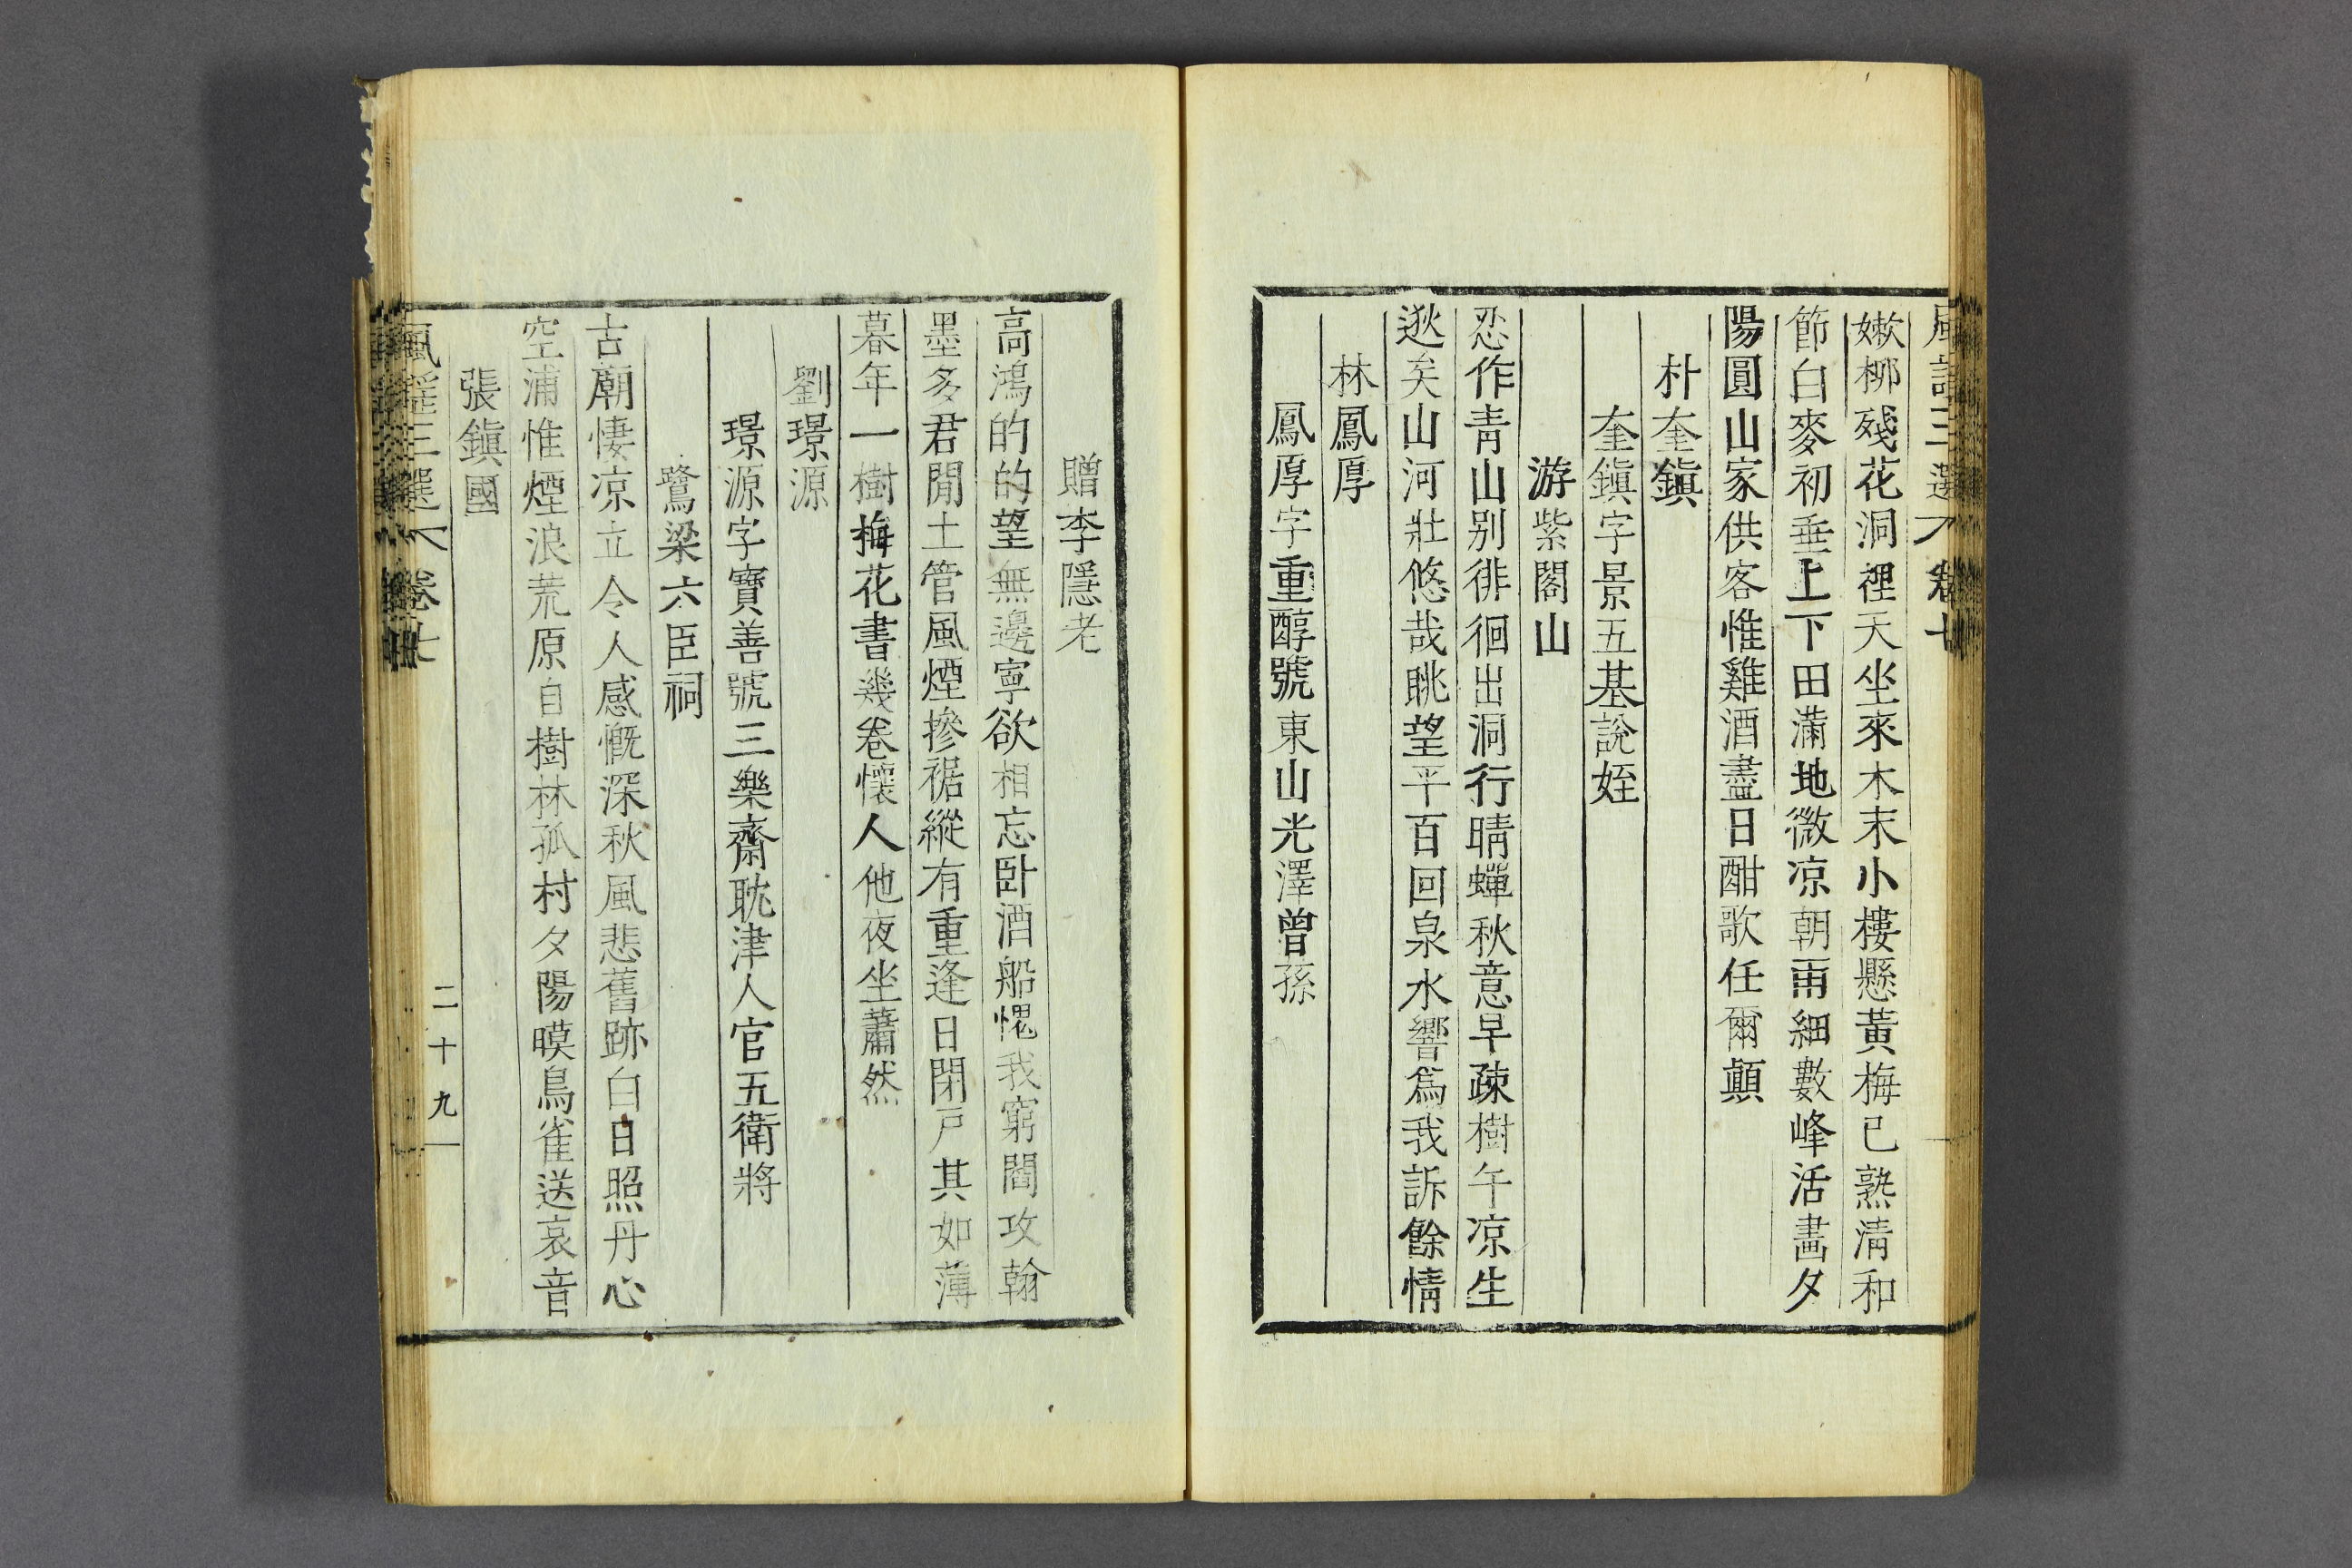 嫰柳殘花洞裡天坐來木末小樓懸黃梅已熟淸和
節白麥初垂上下田滿地微凉朝雨細數峰活畵夕
陽圓山家供客惟雞酒盡日酣歌任爾顚
朴奎鎭
奎鎭字景五基說姪
游紫閣山
忍作靑山別徘徊出洞行晴蟬秋意早疎樹午凉生
逖矣山河壯悠哉眺望平百回泉水響爲我訴餘情
林鳳厚
鳳厚字重醇號東山光澤曾孫
贈李隱老
高鴻的的望無邊寧欲相忘卧酒船愧我窮閻攻翰
墨多君閒土管風煙摻裾縱有重逢日閉戶其如薄
暮年一樹梅花書幾卷懷人他夜坐蕭然
劉璟源
璟源字寶善號三樂齋耽津人官五衛將
鷺梁六臣祠
古廟悽凉立令人感慨深秋風悲舊跡白日照丹心
空浦惟煙浪荒原自樹林孤村夕陽暯鳥雀送哀音
張鎭國
風謠三選 卷七
二十九